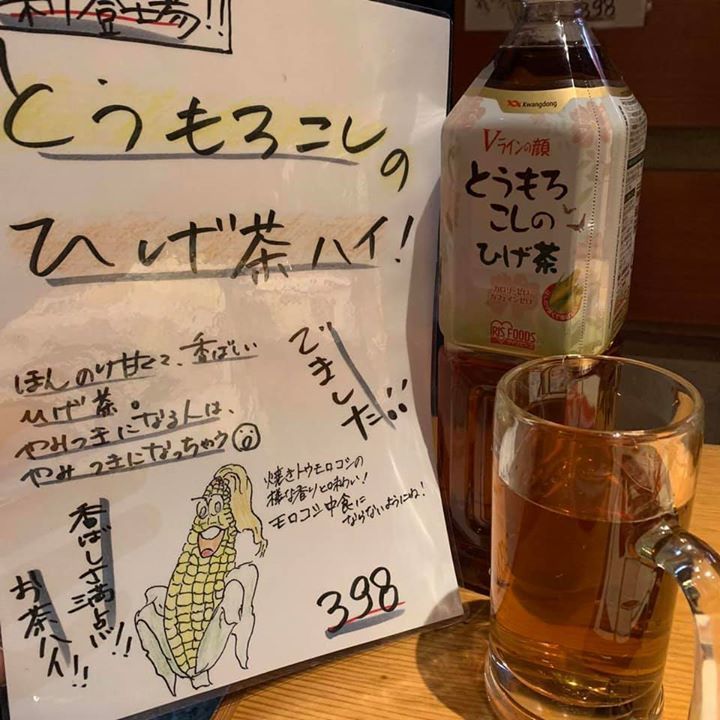 新登場!!
とうもろこしの
ひげ茶ハイ!
できました!!
ほんのり甘くて、香ばしい
ひげ茶。
やみつきになる人は、
やみつきになっちゃう
焼きトウモロコシの
様な香りと味わい!
モロコシ中食に
ならないようにね!
香ばしさ満点!!
お茶ハイ!!
398
398
Kwangdong
Vラインの顔
とうもろ
こしの
ひげ茶
カロリーゼロ
カフェインゼロ
IRIS FOODS